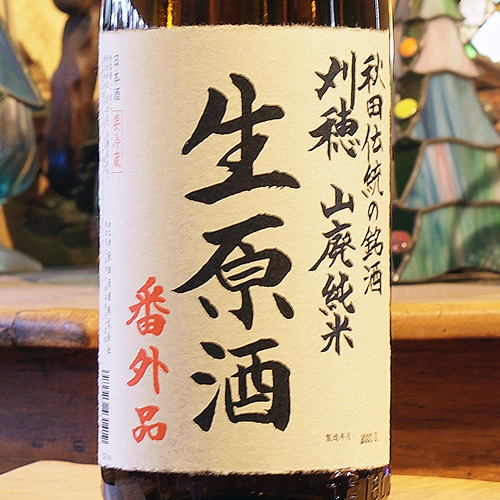 秋田伝統の銘酒
刈穂 山廃純米
生原酒
番外品
日本酒
要冷蔵
製造年月